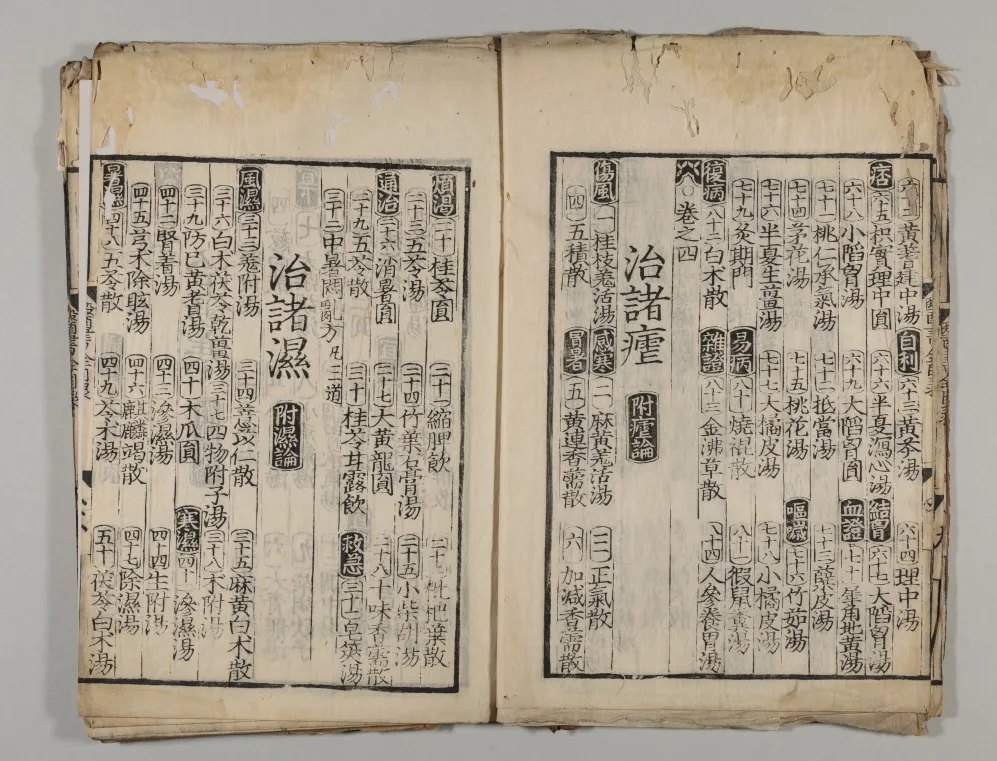 六十二黃耆建中湯 自利 六十三黃芩湯 六十四理中湯
痞 六十五枳實理中圓 六十六半夏瀉心湯 結胷 六十七大陷胷湯
六十八小陷胷湯 六十九大陷胷圓 血證 七十犀角地黃湯
七十一桃仁承氣湯 七十二抵當湯 七十三蘗皮湯
七十四茅花湯 七十五桃花湯 嘔噦 七十六竹茹湯
七十六半夏生薑湯 七十七大橘皮湯 七十八小橘皮湯
七十九灸期門 易病 八十燒裩散 八十一猳鼠糞湯
復病 八十二白朮散 雜證 八十三金沸草散 八十四人參養胃湯
卷之四
治諸瘧 附瘧論
傷風 一桂枝羗活湯 感寒 二麻黃羗活湯 三正氣散
四五積散 冒暑 五黃連香薷散 六加減香薷散
煩渴 二十桂苓圓 二十一縮脾飲 二十二枇杷葉散
二十三五苓湯 二十四竹葉石膏湯 二十五小柴胡湯
通治 二十六消暑圓 二十七大黃龍圓 二十八十味香薷散
二十九五苓散 三十桂苓甘露飲 救急 三十一皂莢湯
三十二中暑悶方凡三道
治諸濕 附濕論
風濕 三十三羗附湯 三十四薏苡仁散 三十五麻黃白朮散
三十六白朮茯苓乾薑湯 三十七四物附子湯 三十八朮附湯
三十九防已黃耆湯 四十木瓜圓 寒濕 四十一滲濕湯
四十二腎著湯 四十三滲濕湯 四十四生附湯
四十五芎朮除眩湯 四十六麒麟竭散 四十七除濕湯
暑濕 四十八五苓散 四十九苓朮湯 五十茯苓白朮湯